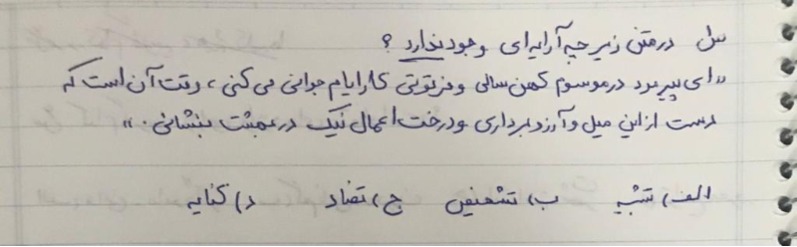 س در متن زیر چه آرایه‌ای وجود ندارد ؟
«ای پیرمرد در موسوم کهن سالی و فرتوتی کار ایام جوانی می کنی ، وقت آن است که
دست از این میل و آرزو برداری و درخت اعمال نیک در بهشت بنشانی . »
الف) تشبیه ب) تشخیص ج) تضاد د) کنایه